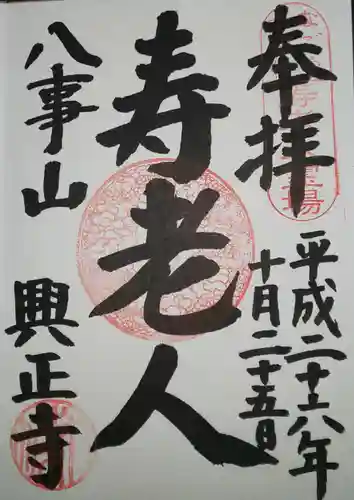 奉拝
平成二十八年
十月二十五日
寿老人
八事山
興正寺